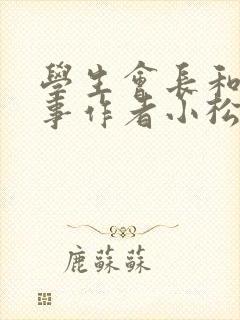 學生會長和
事作者小松
鹿蘇蘇